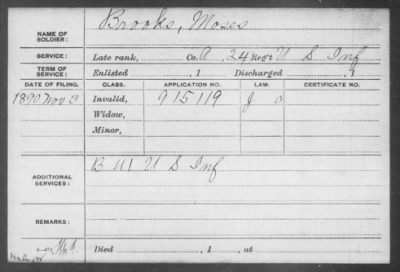 NAME OF SOLDIER: Brooks, Moses
SERVICE: Late rank, Co. A, 24 Reg't U S Inf
TERM OF SERVICE: Enlisted , 1 Discharged , 1
DATE OF FILING. CLASS. APPLICATION NO. LAW. CERTIFICATE NO.
1890 Nov 3 Invalid, 915119 J O
Widow,
Minor,
ADDITIONAL SERVICES: B U S Inf
REMARKS:
Died , 1 , at